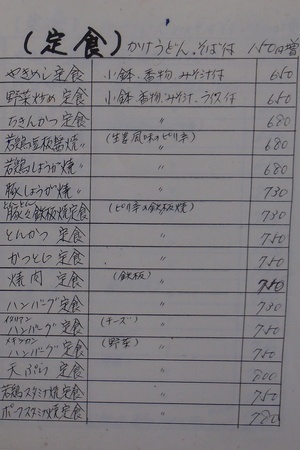 (定食) かけうどん、そば付 150円増
やきめし定食 小鉢、香物、みそ汁付 650
野菜炒め定食 小鉢、香物、みそ汁、ライス付 650
ちきんかつ定食 〃 680
若鶏豆板醤焼〃 (生姜風味のピリ辛) 〃 680
若鶏しょうが焼〃 〃 680
豚しょうが焼〃 〃 730
豚々鉄板焼定食 (ピリ辛の鉄板焼) 〃 730
とんかつ定食 〃 750
かつとじ定食 〃 750
焼肉定食 (鉄板) 〃 750
ハンバーグ定食 〃 730
イタリアンハンバーグ定食 (チーズ) 〃 750
メキシカンハンバーグ定食 (野菜) 〃 750
天ぷら定食 〃 800
若鶏スタミナ焼定食 〃 750
ポークスタミナ焼定食 〃 780